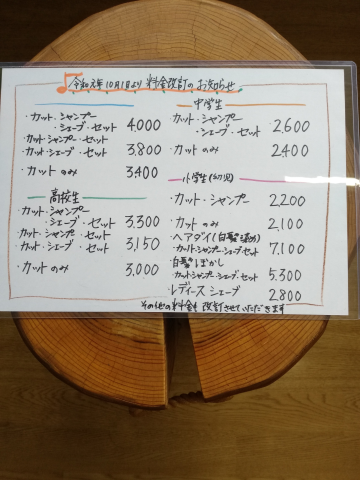 令和元年10月1日より 料金改訂のお知らせ
・カット・シャンプー
・シェーブ・セット 4,000
・カット・シャンプー・セット
・カット・シェーブ・セット 3,800
・カットのみ 3400
高校生
・カット・シャンプー
・シェーブ・セット 3,300
・カット・シャンプー・セット
・カット・シェーブ・セット 3,150
・カットのみ 3,000
中学生
・カット・シャンプー
・シェーブ・セット 2,600
・カットのみ 2400
小学生(幼児)
・カット・シャンプー 2,200
・カットのみ 2,100
・ヘアダイ(白髪染め)
・カットシャンプーシェーブセット 7,100
・白髪ぼかし
・カットシャンプー・シェーブ・セット 5,300
・レディースシェーブ 2,800
その他の料金も改訂させていただきます